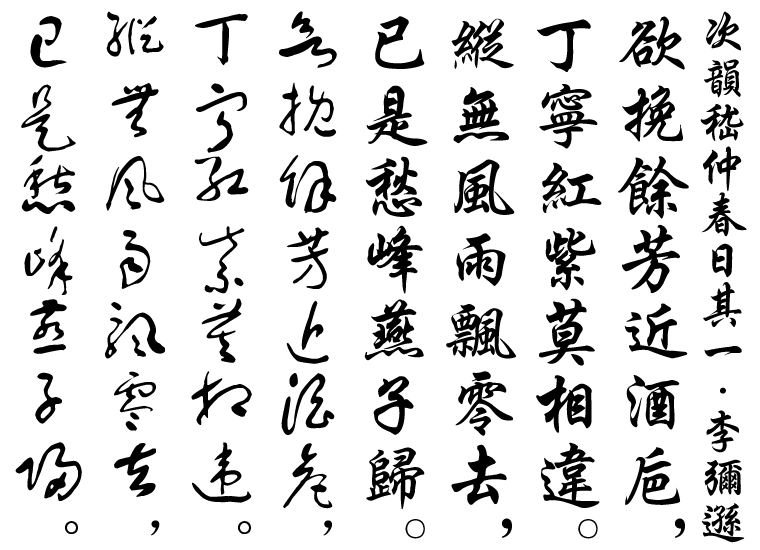 次韻嵇仲春日其一·李彌遜
欲挽餘芳近酒巵，
丁寧紅紫莫相違。
縱無風雨飄零去，
已是愁峰燕子歸。
欲挽餘芳近酒巵，
丁寧紅紫莫相違。
縱無風雨飄零去，
已是愁峰燕子歸。